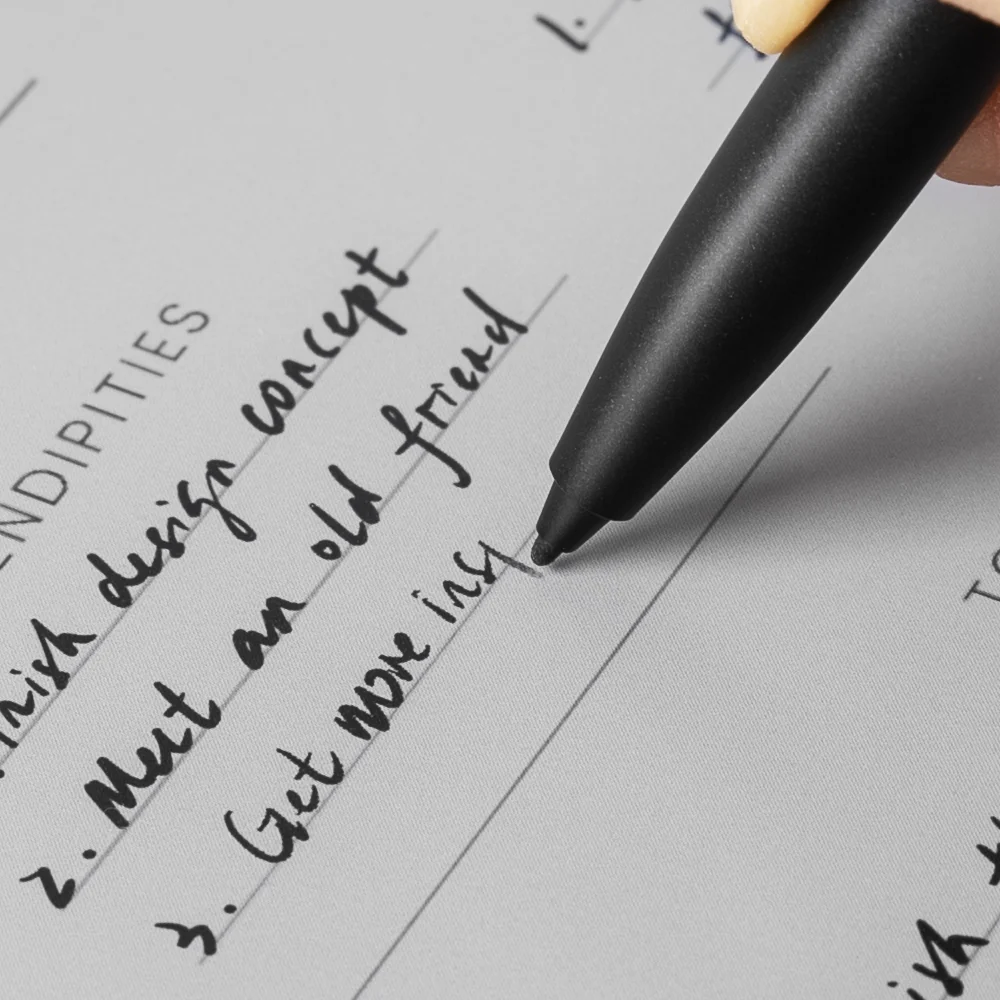 1.
NDIPITIES
nish design concept
2. Meet an old friend
3. Get more ins
ish